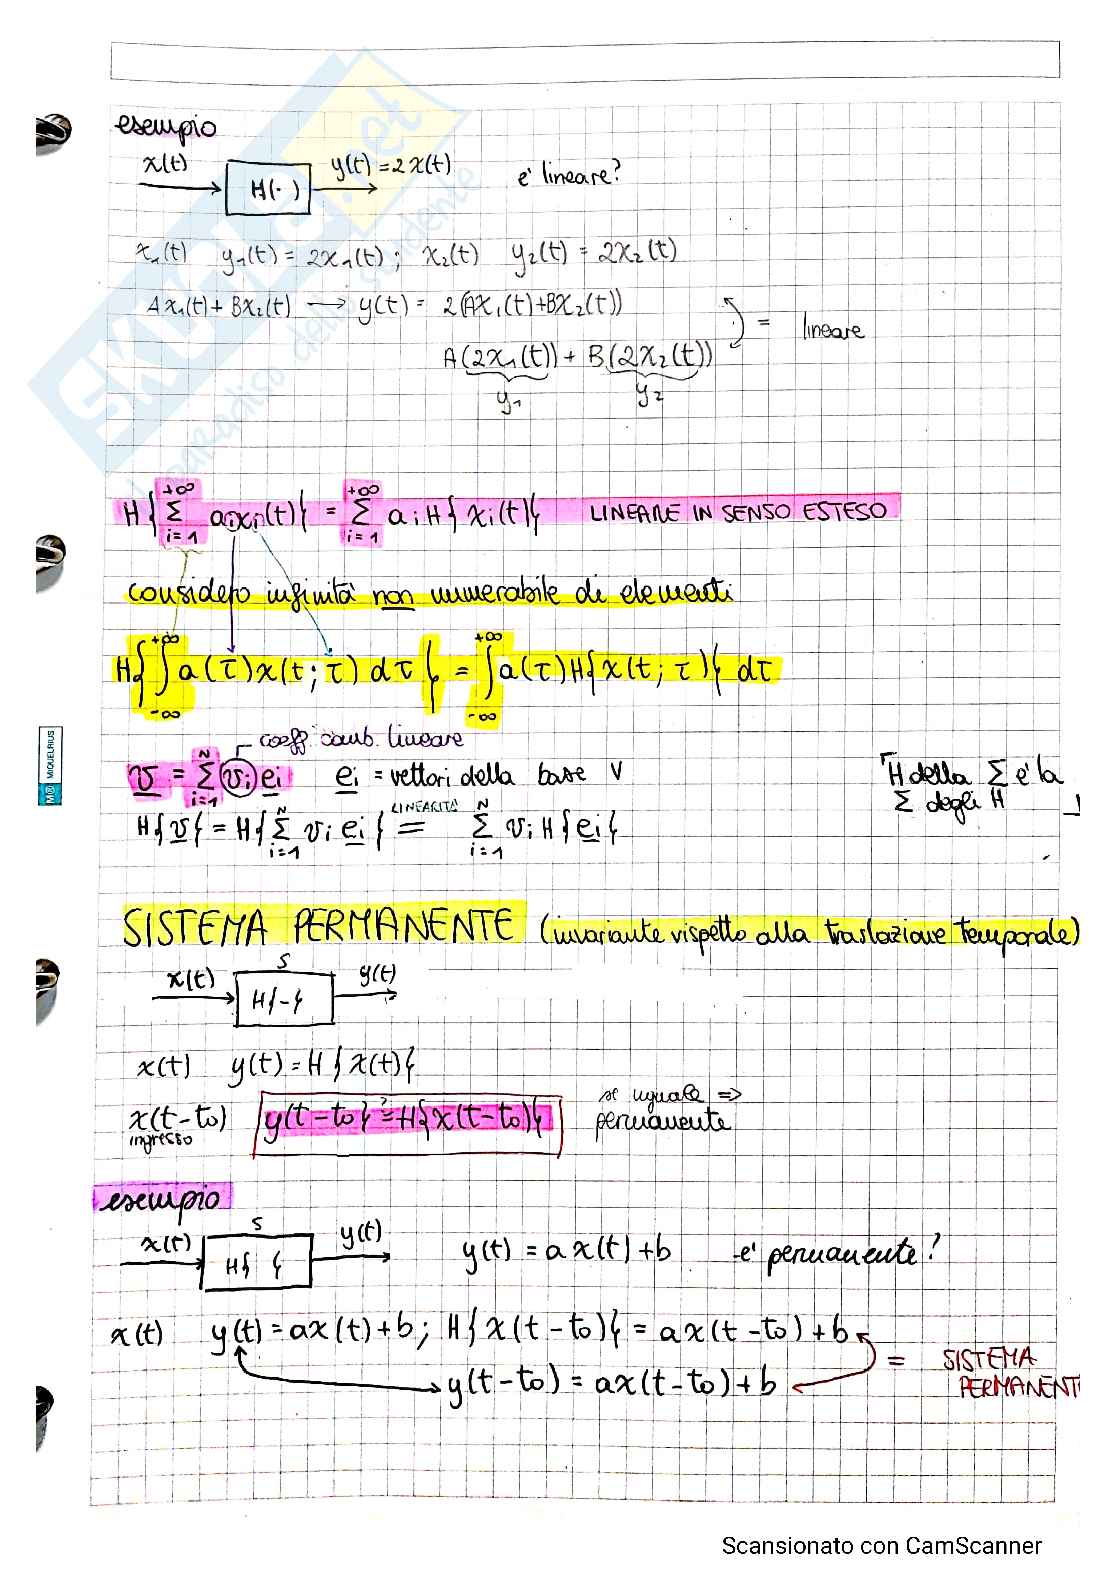 esempio
x(t) H(·) y(t)=2x(t) e' lineare?
x₁(t) y₁(t) = 2x₁(t) ; x₂(t) y₂(t) = 2x₂(t)
Ax₁(t)+Bx₂(t) → y(t) = 2(Ax₁(t)+Bx₂(t))
= lineare
A(2x₁(t)) + B(2x₂(t))
y₁ y₂
H{ Σ_{i=1}^{+∞} aᵢxᵢ(t)} = Σ_{i=1}^{+∞} aᵢ H{xᵢ(t)} LINEARE IN SENSO ESTESO
considero infinità non numerabile di elementi
H{ ∫_{-∞}^{+∞} a(τ)x(t;τ) dτ } = ∫_{-∞}^{+∞} a(τ)H{x(t;τ)} dτ
coeff. comb. lineare
v = Σ_{i=1}^{N} vᵢ eᵢ eᵢ = vettori della base V
H della Σ e' la
Σ degli H
H{v} = H{ Σ_{i=1}^{N} vᵢ eᵢ } = LINEARITA' Σ_{i=1}^{N} vᵢ H{eᵢ}
SISTEMA PERMANENTE (invariante rispetto alla traslazione temporale)
x(t) S H{-} y(t)
x(t) y(t) = H{x(t)}
x(t-t₀) y(t-t₀} ?= H{x(t-t₀)} se uguale =>
ingresso permanente
esempio
x(t) S H{ } y(t) y(t) = ax(t)+b e' permanente?
x(t) y(t) = ax(t)+b ; H{x(t-t₀)} = ax(t-t₀)+b
y(t-t₀) = ax(t-t₀)+b = SISTEMA
PERMANENT
SKUOLA.net
il paradiso dello studente
MIQUELRIUS
Scansionato con CamScanner